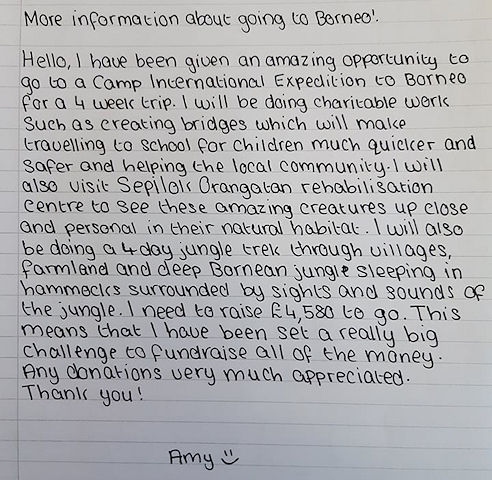 More information about going to Borneo!.
Hello, I have been given an amazing opportunity to
go to a Camp International Expedition to Borneo
for a 4 week trip. I will be doing charitable work
such as creating bridges which will make
travelling to school for children much quicker and
safer and helping the local community. I will
also visit Sepilok Orangatan rehabilisation
centre to see these amazing creatures up close
and personal in their natural habitat. I will also
be doing a 4 day jungle trek through villages,
farmland and deep Bornean jungle sleeping in
hammocks surrounded by sights and sounds of
the jungle. I need to raise £4,580 to go. This
means that I have been set a really big
challenge to fundraise all of the money.
Any donations very much appreciated.
Thank you!
Amy